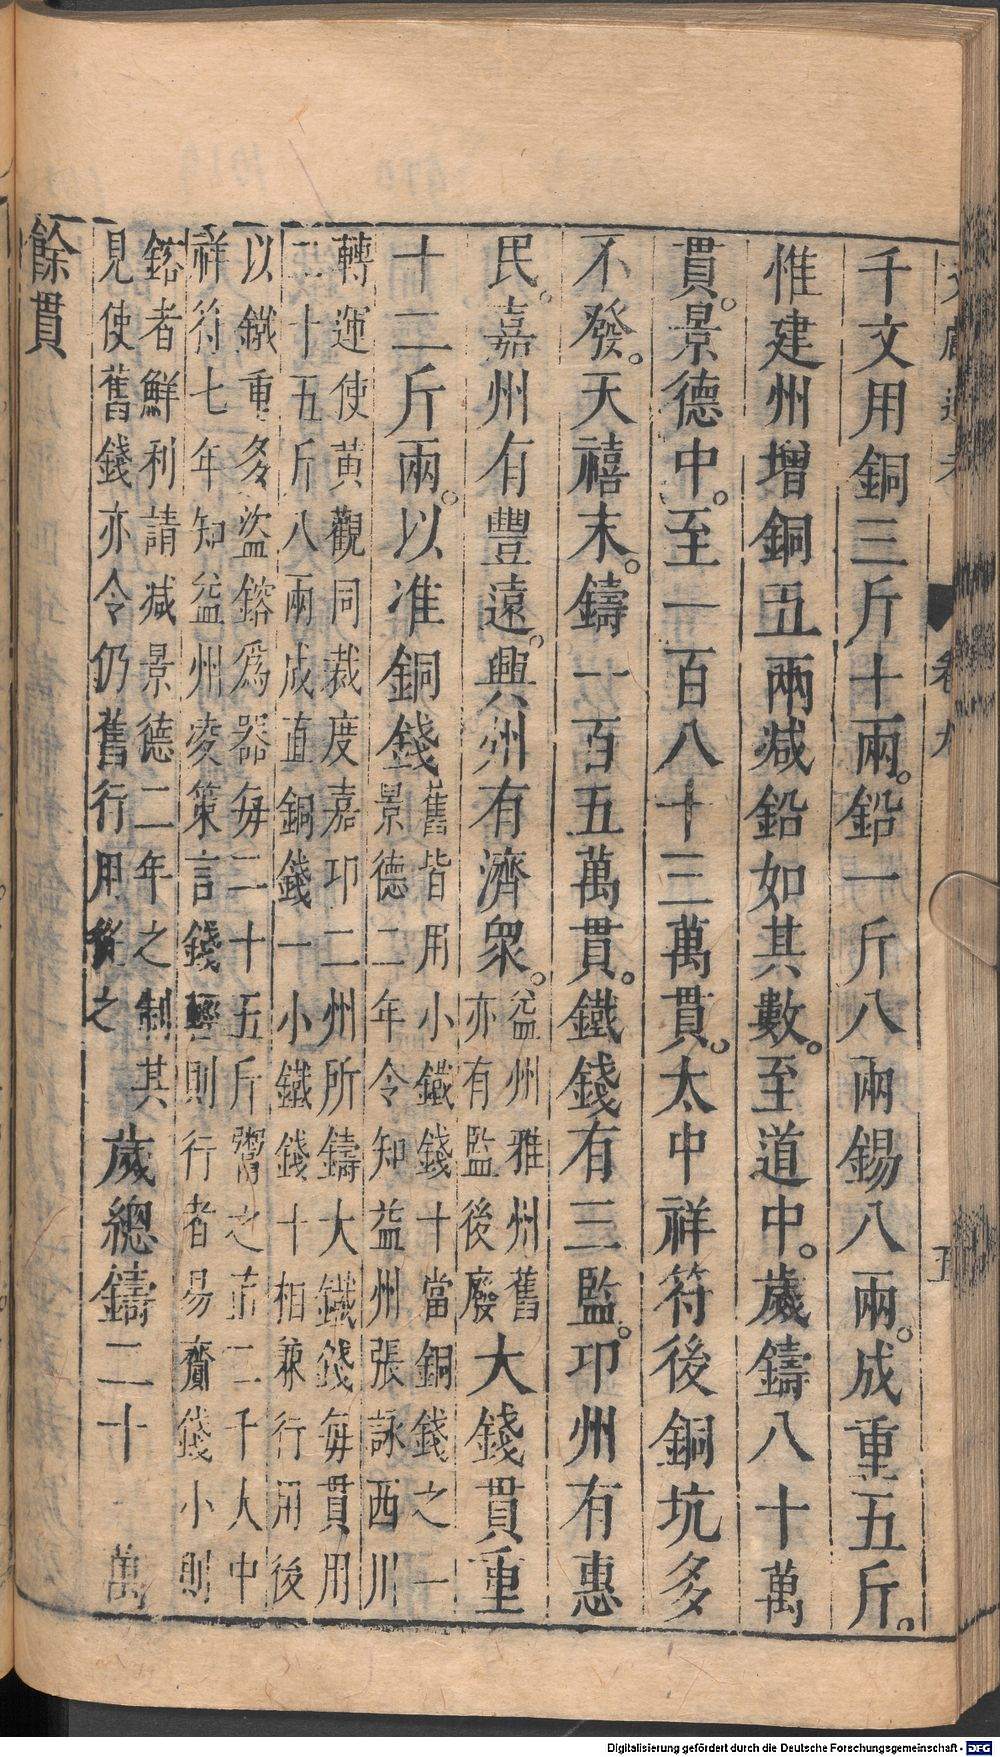 文獻通考 卷九 五
千文用銅三斤十兩。鉛一斤八兩錫八兩。成重五斤。
惟建州增銅五兩减鉛如其數。至道中。歲鑄八十萬
貫。景德中。至一百八十三萬貫。太中祥符後銅坑多
不發。天禧末。鑄一百五萬貫。鐵錢有三監。卭州有惠
民。嘉州有豐遠。興州有濟衆。
益州雅州舊
亦有監後廢
大錢貫重
十二斤兩。以准銅錢
舊皆用小鐵錢十當銅錢之一
景德二年令知益州張詠西川
轉運使黃觀同裁度嘉卭二州所鑄大鐵錢每貫用
二十五斤八兩成直銅錢一小鐵錢十相兼行用後
以鐵重多盜鎔爲器每二十五斤鬻之直二千大中
祥符七年知益州凌策言錢輕則行者易齎錢小則
鎔者鮮利請减景德二年之制其
見使舊錢亦令仍舊行用從之
歲總鑄二十 萬
餘貫
Digitalisierung gefördert durch die Deutsche Forschungsgemeinschaft - DFG